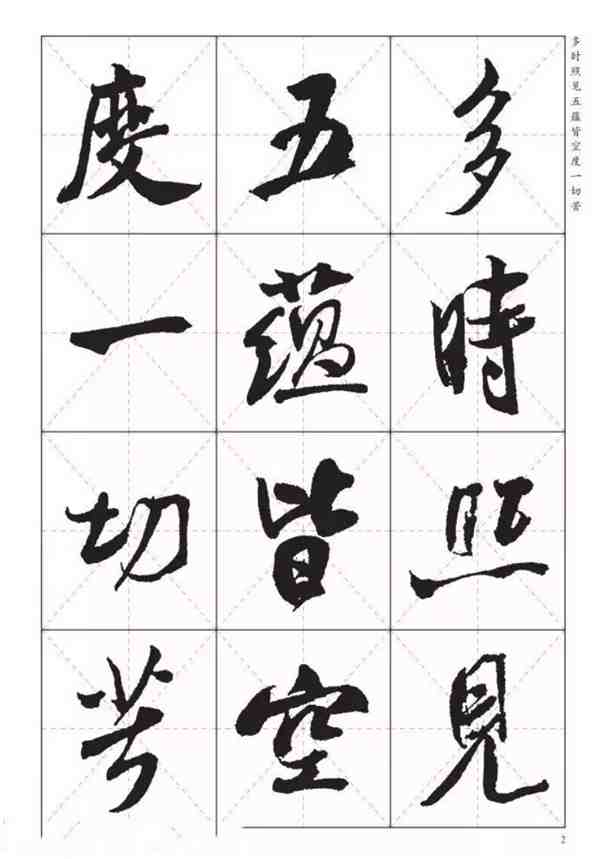 多时照见五蕴皆空度一切苦
多時照見
五蕴皆空
度一切苦
2